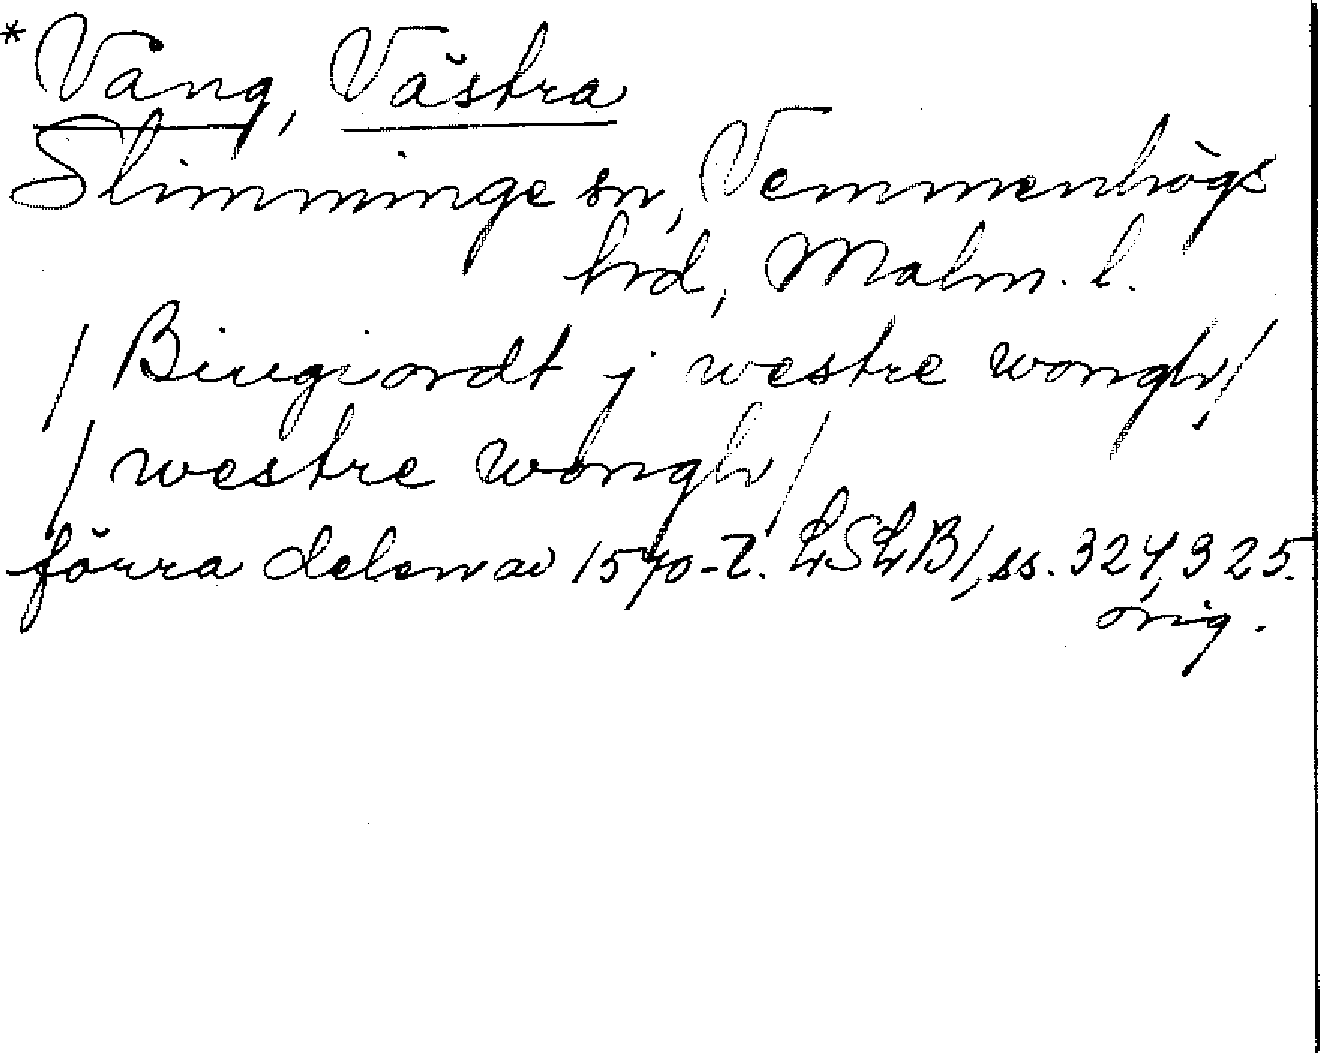 *Vång, Västra
Slimminge sn, Vemmenhögs
hrd, Malm. l.
/ Biugiordt j westre wongh, /
/ westre wongh /
förra delen av 1570-t. LSLB 1, ss. 324, 325.
orig.